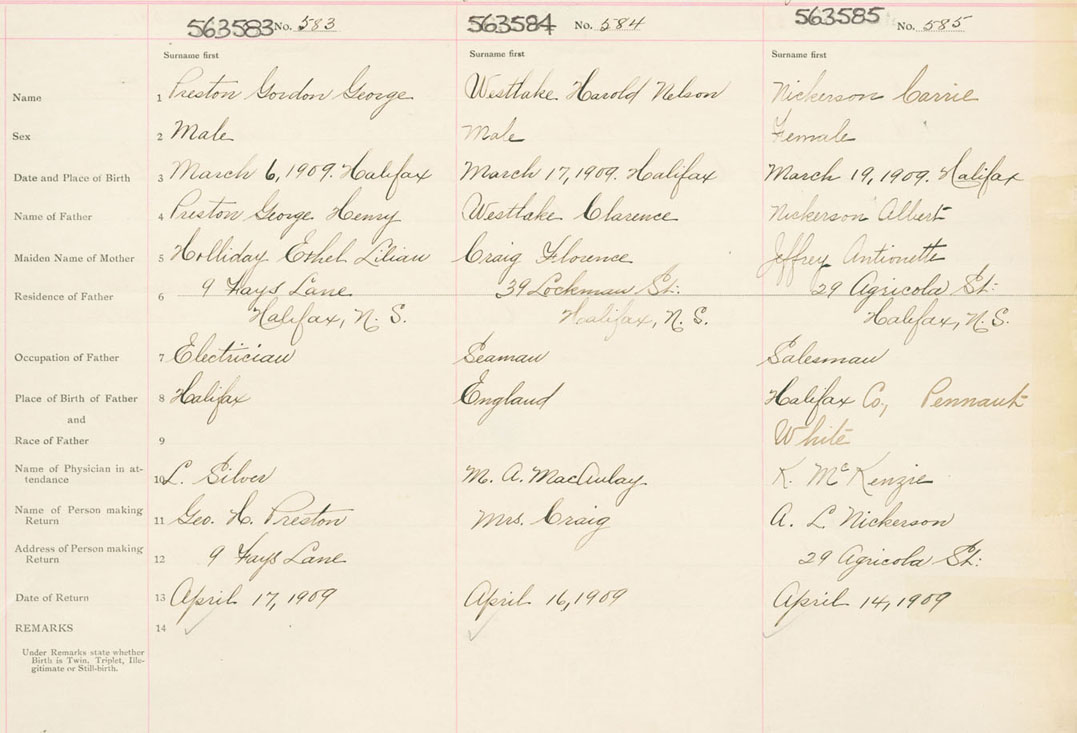 563583 No. 583 563584 No. 584 563585 No. 585
Surname first Surname first Surname first
Name 1 Preston Gordon George Westlake Harold Nelson Nickerson Carrie
Sex 2 Male Male Female
Date and Place of Birth 3 March 6, 1909. Halifax March 17, 1909. Halifax March 19, 1909. Halifax
Name of Father 4 Preston George Henry Westlake Clarence Nickerson Albert
Maiden Name of Mother 5 Holliday Ethel Lilian Craig Florence Jeffrey Antionette
Residence of Father 6 9 Fays Lane 39 Lockman St: 29 Agricola St:
Halifax, N. S. Halifax, N. S. Halifax, N. S.
Occupation of Father 7 Electrician Seaman Salesman
Place of Birth of Father 8 Halifax England Halifax Co, Pennant
and
Race of Father 9 White
Name of Physician in at-
tendance 10 L. Silver M. A. MacAulay K. McKenzie
Name of Person making
Return 11 Geo. H. Preston Mrs. Craig A. L. Nickerson
Address of Person making
Return 12 9 Fays Lane 29 Agricola St:
Date of Return 13 April 17, 1909 April 16, 1909 April 14, 1909
REMARKS 14
Under Remarks state whether
Birth is Twin, Triplet, Ille-
gitimate or Still-birth.